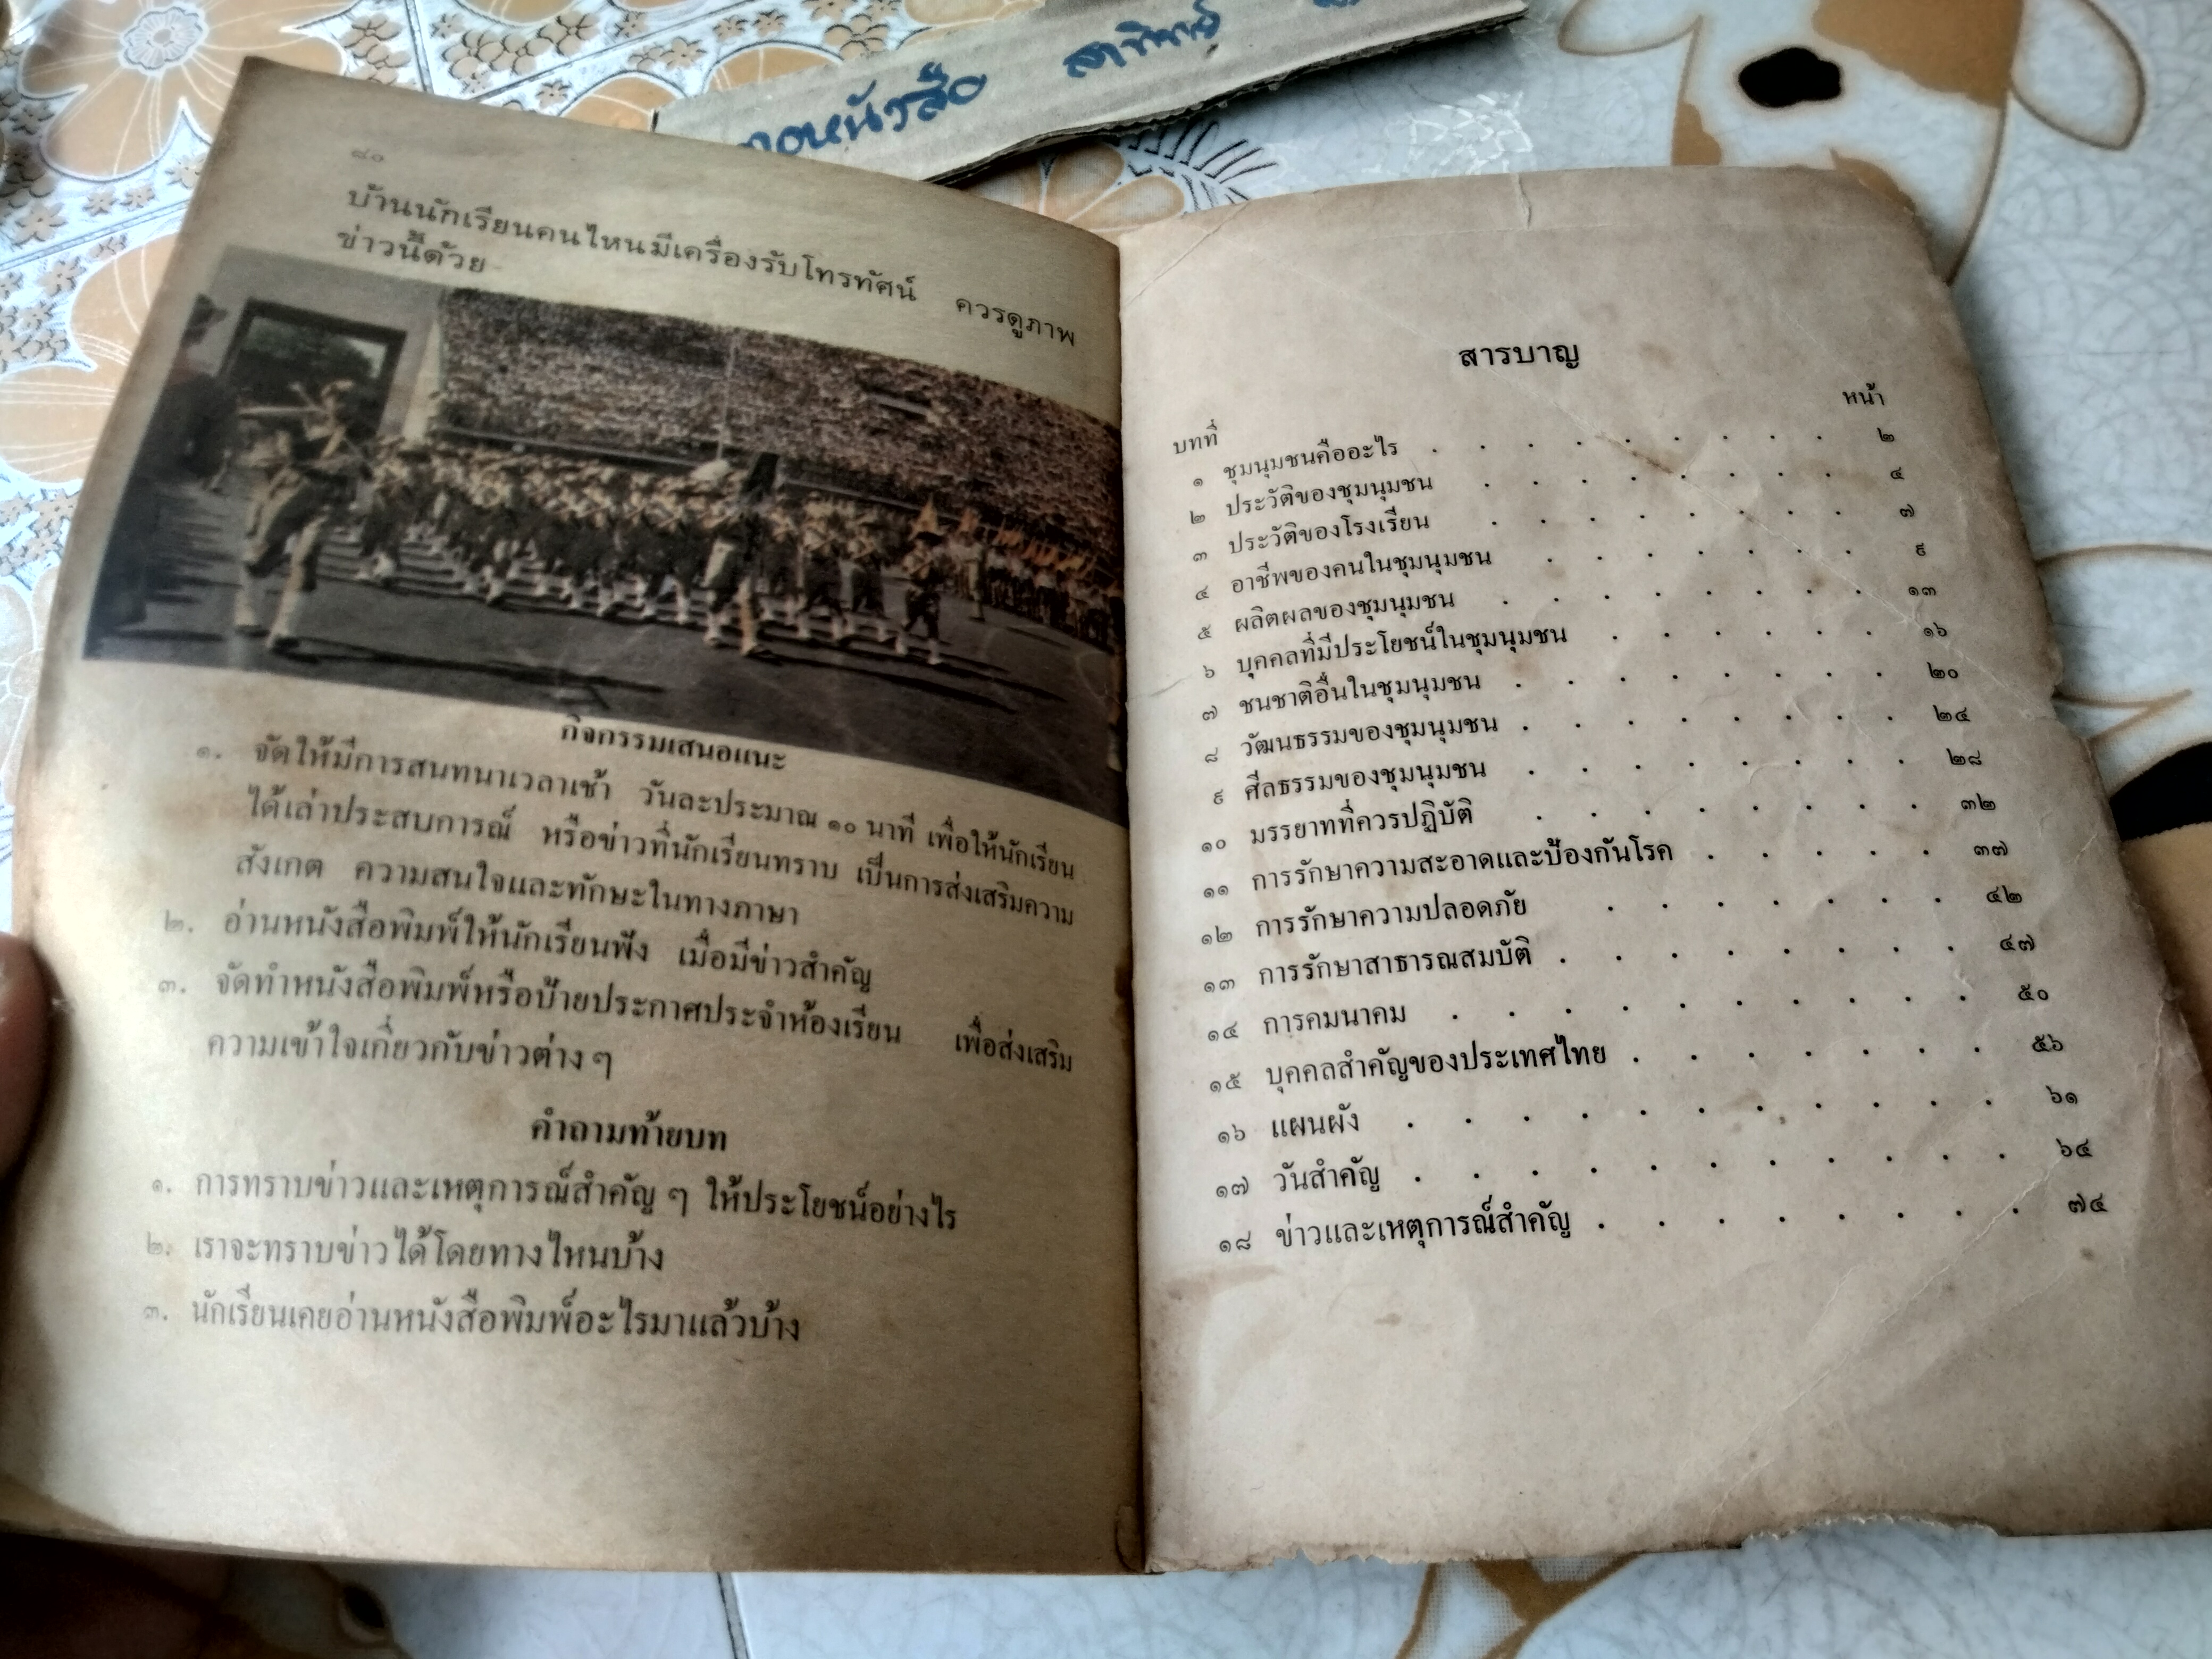 หนังสือ
๘๐
บ้านนักเรียนคนไหนมีเครื่องรับโทรทัศน์ ควรดูภาพ
ข่าวนี้ด้วย
กิจกรรมเสนอแนะ
๑. จัดให้มีการสนทนาเวลาเช้า วันละประมาณ ๑๐ นาที เพื่อให้นักเรียน
ได้เล่าประสบการณ์ หรือข่าวที่นักเรียนทราบ เป็นการส่งเสริมความ
สังเกต ความสนใจและทักษะในทางภาษา
๒. อ่านหนังสือพิมพ์ให้นักเรียนฟัง เมื่อมีข่าวสำคัญ
๓. จัดทำหนังสือพิมพ์หรือป้ายประกาศประจำห้องเรียน เพื่อส่งเสริม
ความเข้าใจเกี่ยวกับข่าวต่าง ๆ
คำถามท้ายบท
๑. การทราบข่าวและเหตุการณ์สำคัญ ๆ ให้ประโยชน์อย่างไร
๒. เราจะทราบข่าวได้โดยทางไหนบ้าง
๓. นักเรียนเคยอ่านหนังสือพิมพ์อะไรมาแล้วบ้าง
สารบาญ
บทที่ หน้า
๑ ชุมนุมชนคืออะไร . . . . . . . . . ๒
๒ ประวัติของชุมนุมชน . . . . . . . . ๔
๓ ประวัติของโรงเรียน . . . . . . . . ๗
๔ อาชีพของคนในชุมนุมชน . . . . . . . ๙
๕ ผลิตผลของชุมนุมชน . . . . . . . . ๑๓
๖ บุคคลที่มีประโยชน์ในชุมนุมชน . . . . . . ๑๖
๗ ชนชาติอื่นในชุมนุมชน . . . . . . . . ๒๐
๘ วัฒนธรรมของชุมนุมชน . . . . . . . . ๒๔
๙ ศีลธรรมของชุมนุมชน . . . . . . . . ๒๘
๑๐ มรรยาทที่ควรปฏิบัติ . . . . . . . . ๓๒
๑๑ การรักษาความสะอาดและป้องกันโรค . . . . . ๓๗
๑๒ การรักษาความปลอดภัย . . . . . . . ๔๒
๑๓ การรักษาสาธารณสมบัติ . . . . . . . . ๔๗
๑๔ การคมนาคม . . . . . . . . . . ๕๐
๑๕ บุคคลสำคัญของประเทศไทย . . . . . . . ๕๖
๑๖ แผนผัง . . . . . . . . . . . ๖๑
๑๗ วันสำคัญ . . . . . . . . . . . ๖๔
๑๘ ข่าวและเหตุการณ์สำคัญ . . . . . . . . ๗๔